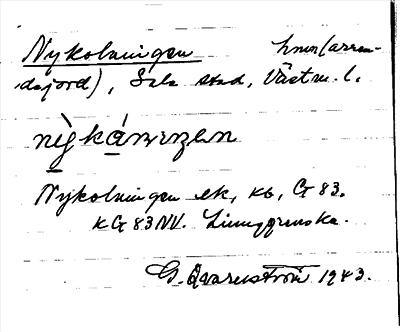 Nykolningen hmn (arren-
dejord), Sala stad, Västm. l.
Nykolningen ek, kb, G 83.
KG 83 NV. Ljunggrenska.
G. Qvarnström 1943.